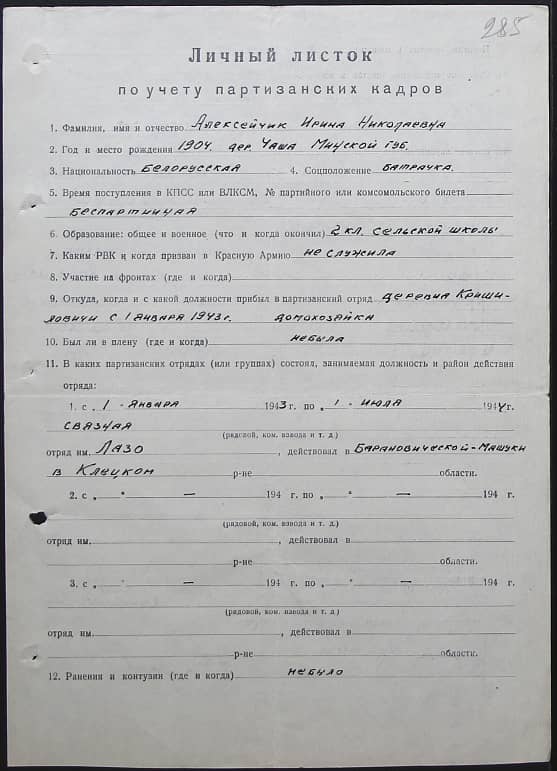 285
Личный листок
по учету партизанских кадров
1. Фамилия, имя и отчество Алексейчик Ирина Николаевна
2. Год и место рождения 1904, дер. Чаша Минской губ.
3. Национальность Белорусская 4. Соцположение батрачка.
5. Время поступления в КПСС или ВЛКСМ, № партийного или комсомольского билета
беспартийная
6. Образование: общее и военное (что и когда окончил) 2 кл. сельской школы
7. Каким РВК и когда призван в Красную Армию не служила
8. Участие на фронтах (где и когда)
9. Откуда, когда и с какой должности прибыл в партизанский отряд деревня Криши-
ловичи с 1 января 1943 г. домохозайка
10. Был ли в плену (где и когда) небыла
11. В каких партизанских отрядах (или группах) состоял, занимаемая должность и район действия
отряда:
1. с „1 - января 1943 г. по „1 - июля 1944 г.
связная
(рядовой, ком. взвода и т. д.)
отряд им. Лазо, действовал в Барановической-Машуки
в Клецком р-не области.
2. с „ “ — 194 г. по „ “ — 194 г.
(рядовой, ком. взвода и т. д.)
отряд им. , действовал в
р-не области.
3. с „ “ — 194 г. по „ “ — 194 г.
(рядовой, ком. взвода и т. д.)
отряд им. , действовал в
р-не области.
12. Ранения и контузии (где и когда) небыло